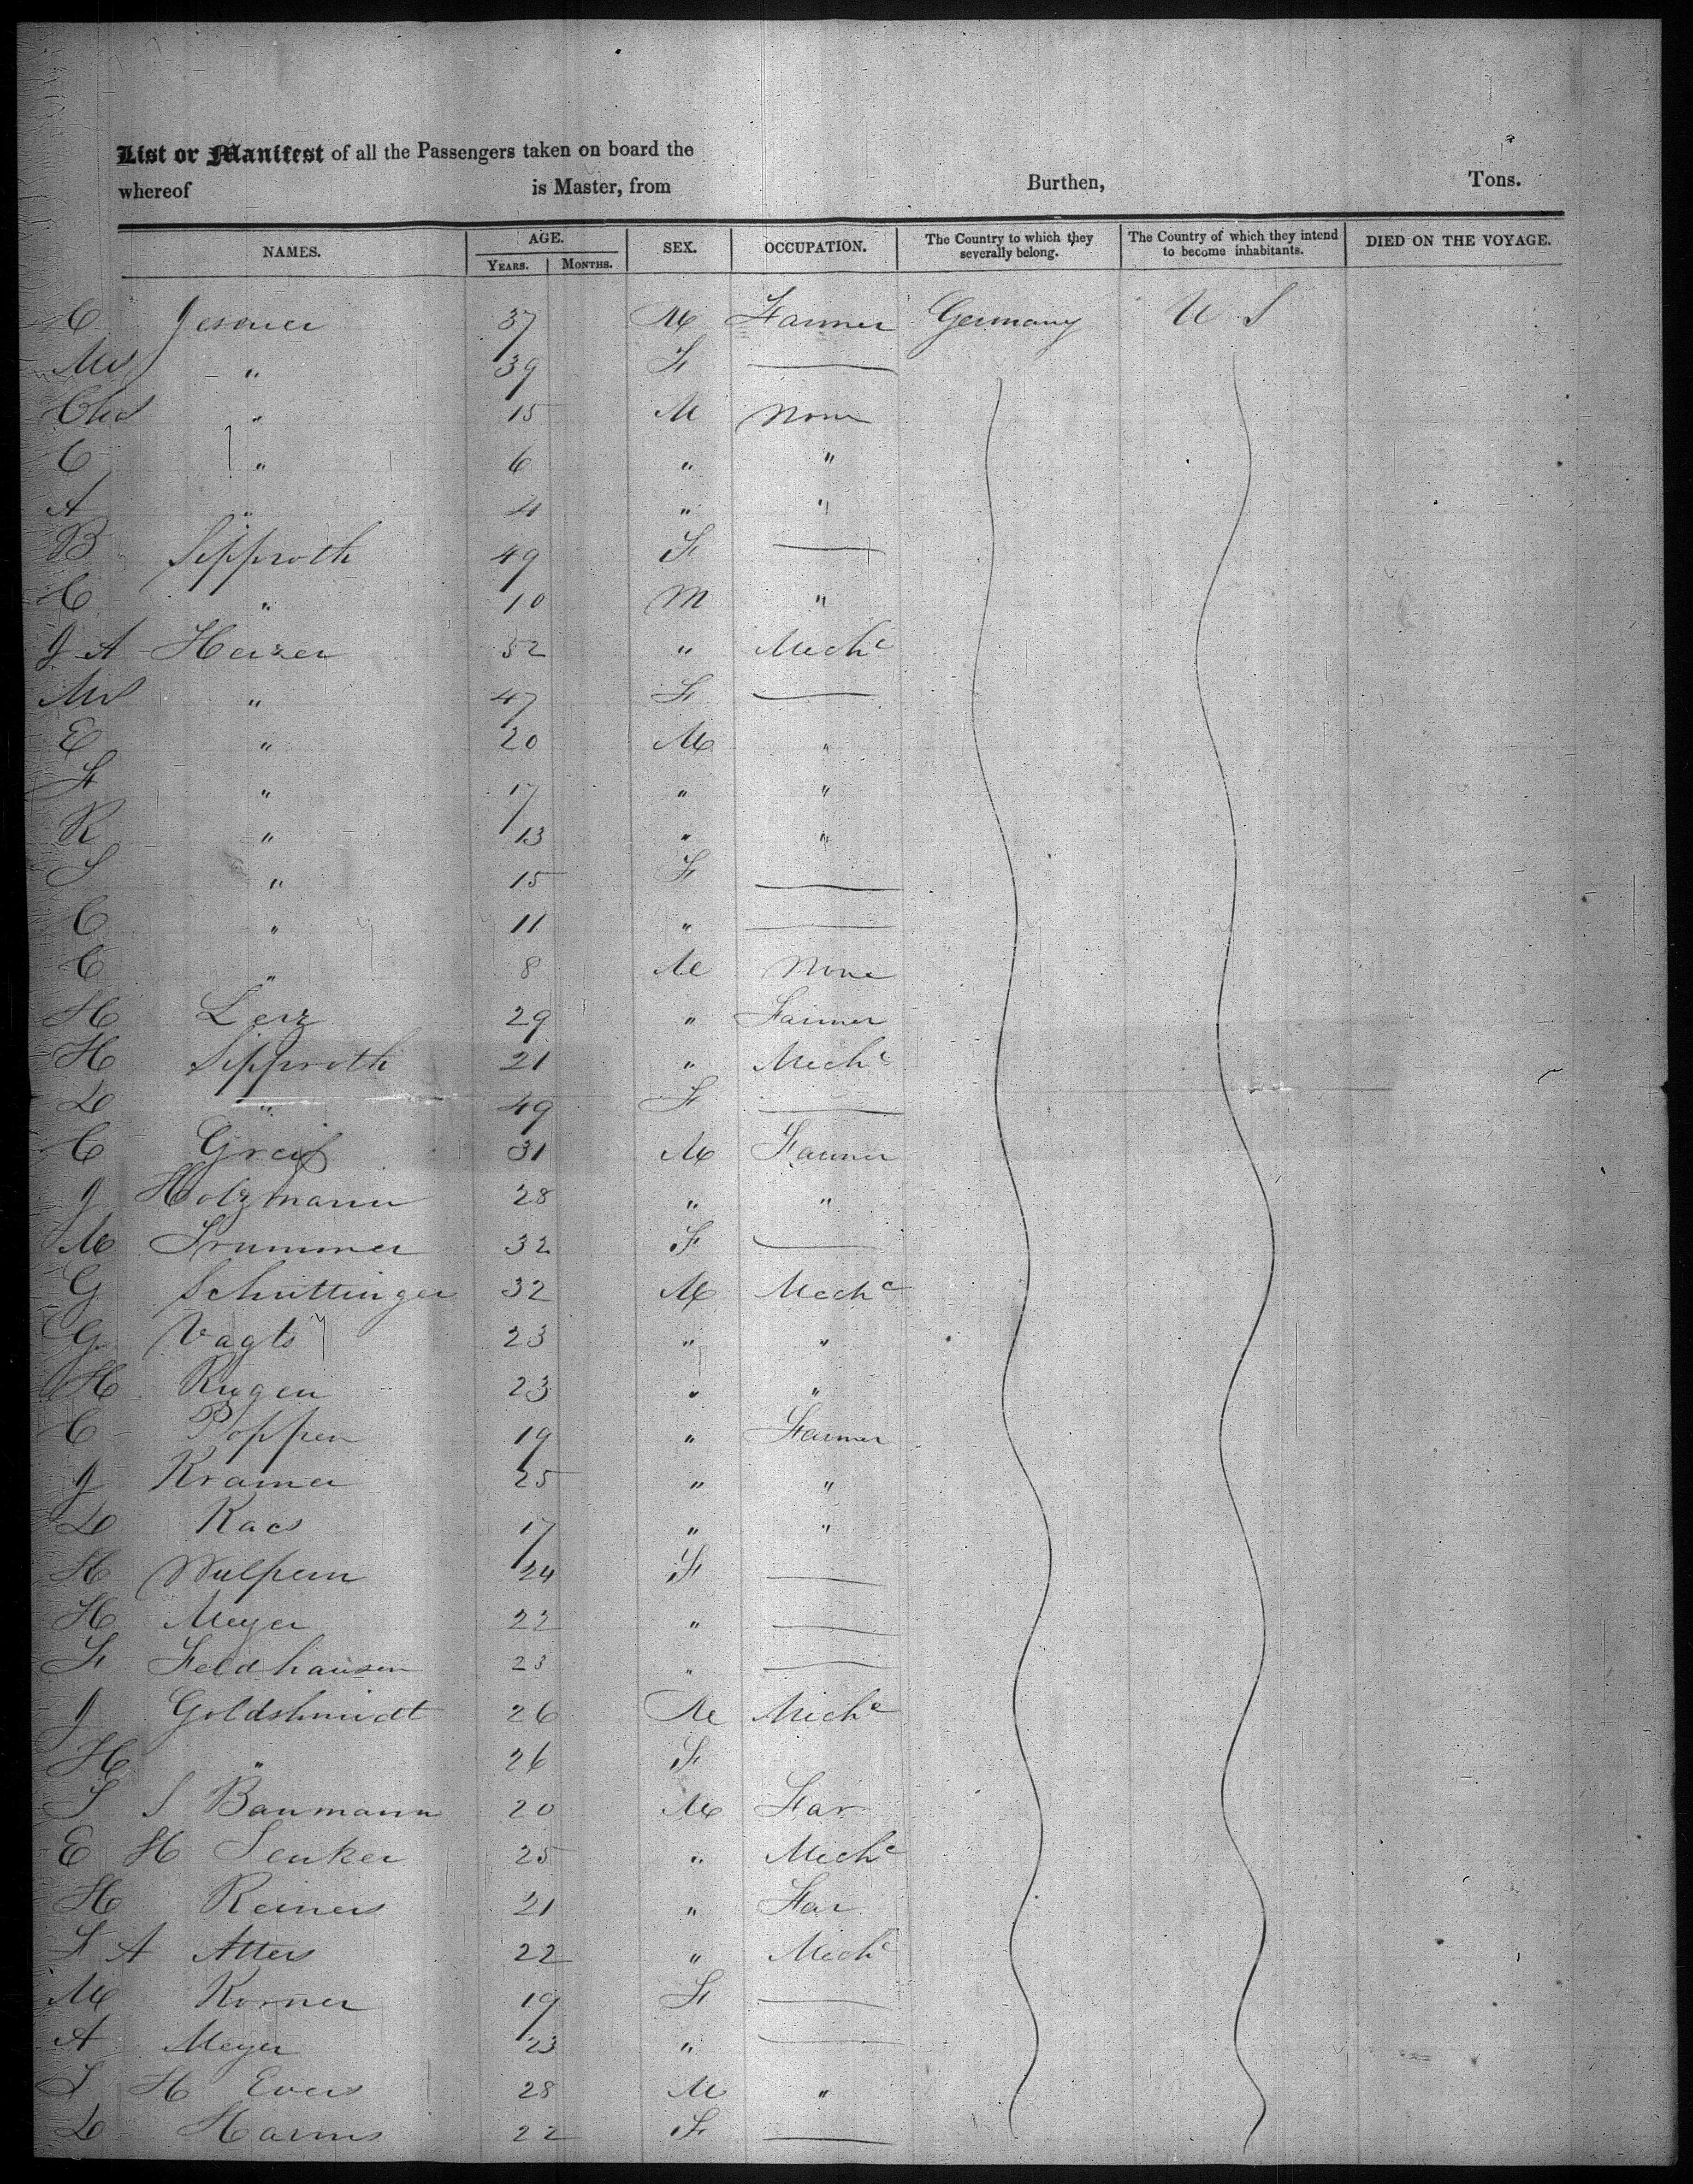 List or Manifest of all the Passengers taken on board the
whereof is Master, from Burthen, Tons.
NAMES. AGE. SEX. OCCUPATION. The Country to which they severally belong. The Country of which they intend to become inhabitants. DIED ON THE VOYAGE.
YEARS. MONTHS.
C 37 M Farmer Germany U S
Mrs " 39 F —
Chas " 15 M None
C " 6 " "
A " 4 " "
B Sipproth 49 F —
C " 10 M "
J A Herzer 52 " Mechc
Mrs " 47 F —
E " 20 M "
F " 17 " "
R " 13 " "
S " 15 F —
C " 11 " —
C " 8 M None
H Lerz 29 " Farmer
H Sipproth 21 " Mechc
D " 49 F —
C Greif 31 M Farmer
J Holzmann 28 " "
M 32 F —
G Schuttinger 32 M Mechc
G Vagts 23 " "
H Rugen 23 " "
C Poppen 19 " Farmer
J Kramer 25 " "
D Kacs 17 " "
H Wulpern 24 F —
H Meyer 22 " —
F Feldhausen 23 " —
J Goldshmidt 26 M Mechc
H " 26 F
S S Baumann 20 M Far
E H 25 " Mechc
H Reiners 21 " Far
F A Atters 22 " Mechc
M Korner 19 F —
A Meyer 23 " —
H Evers 28 M "
D Harms 22 F —